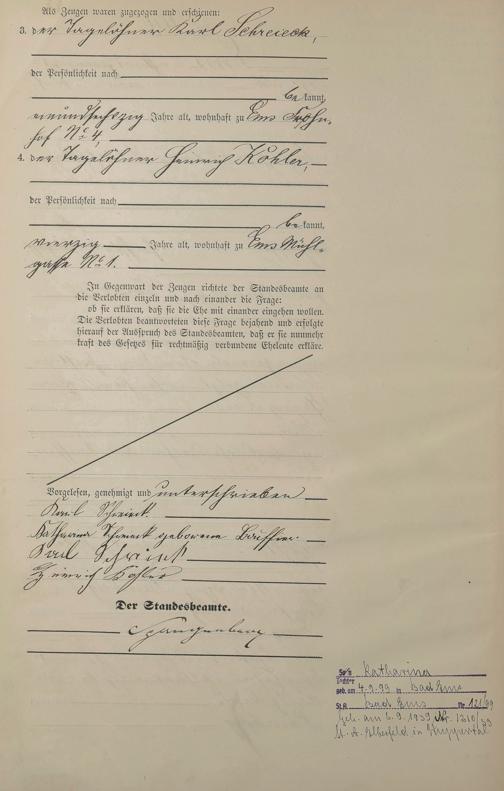 Als Zeugen waren zugezogen und erschienen:
3. der Tagelöhner Karl Schreieck,
der Persönlichkeit nach
be kannt,
einundsechszig Jahre alt, wohnhaft zu Ems Frohn-
hof No 4,
4. der Tagelöhner Heinrich Köhler,
der Persönlichkeit nach
be kannt,
vierzig Jahre alt, wohnhaft zu Ems Mühl-
gasse No 1.
In Gegenwart der Zeugen richtete der Standesbeamte an
die Verlobten einzeln und nach einander die Frage:
ob sie erklären, daß sie die Ehe mit einander eingehen wollen.
Die Verlobten beantworteten diese Frage bejahend und erfolgte
hierauf der Ausspruch des Standesbeamten, daß er sie nunmehr
kraft des Gesetzes für rechtmäßig verbundene Eheleute erkläre.
Vorgelesen, genehmigt und unterschrieben
Karl
Katharina geborene
Karl
Heinrich Köhler
Der Standesbeamte.
Spangenberg
Katharina
Tochter
geb. am 4.9.99 in Bad Ems
St.A. Bad Ems Nr. 121/99
am 6.9.1939 Nr. 1310/39
St. A. Elberfeld in Wuppertal